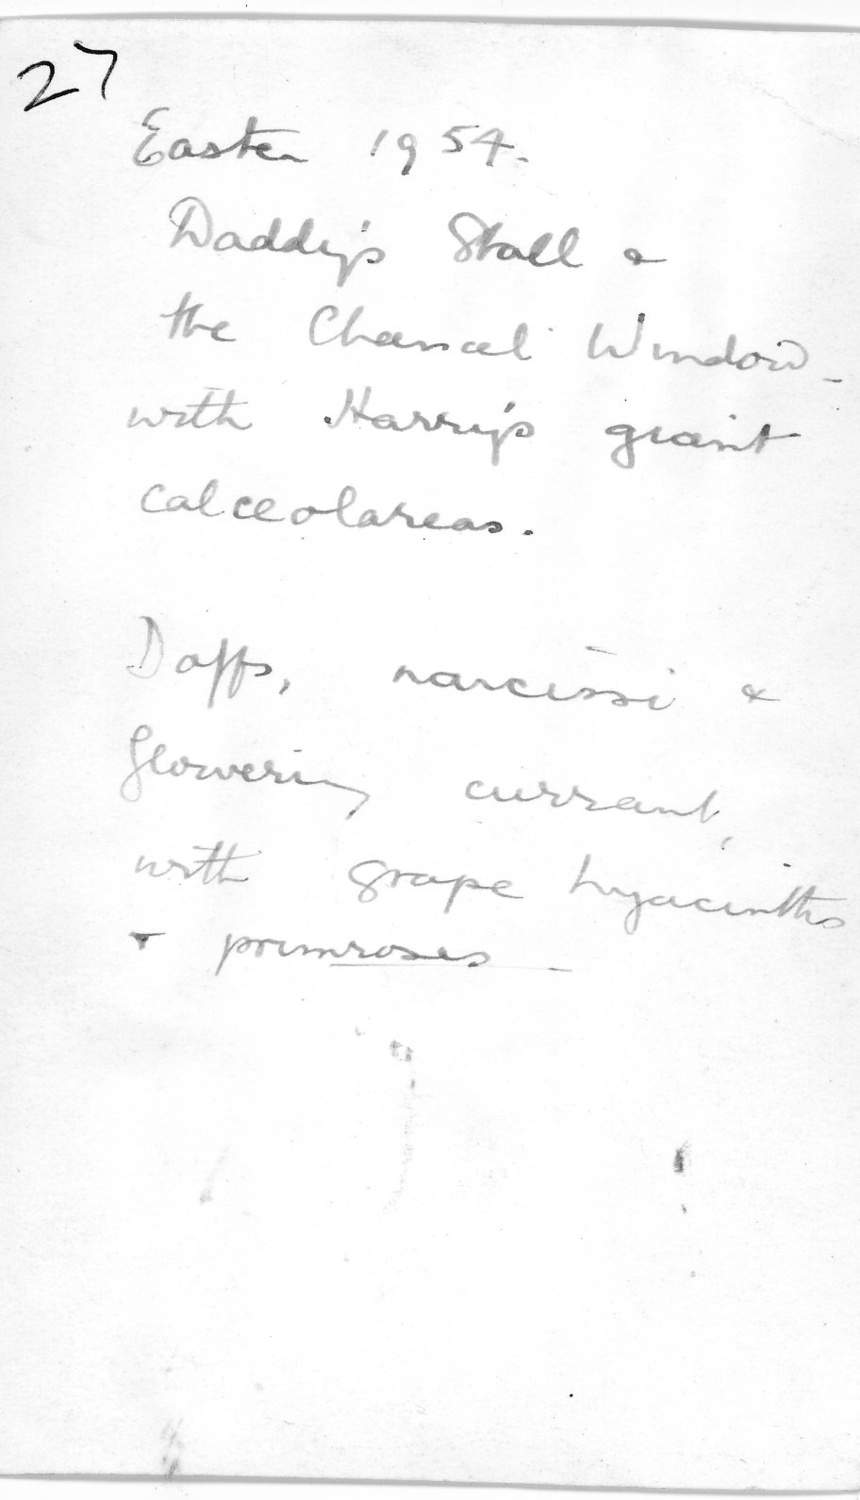 27
Easter 1954.
Daddy's Stall &
the Chancel Window -
with Harry's giant
calceolareas.
Daffs, narcissi &
flowering currant,
with grape hyacinths
& primroses -